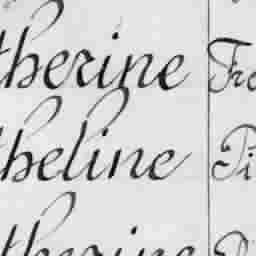 therine Fre
theline Pi
therine